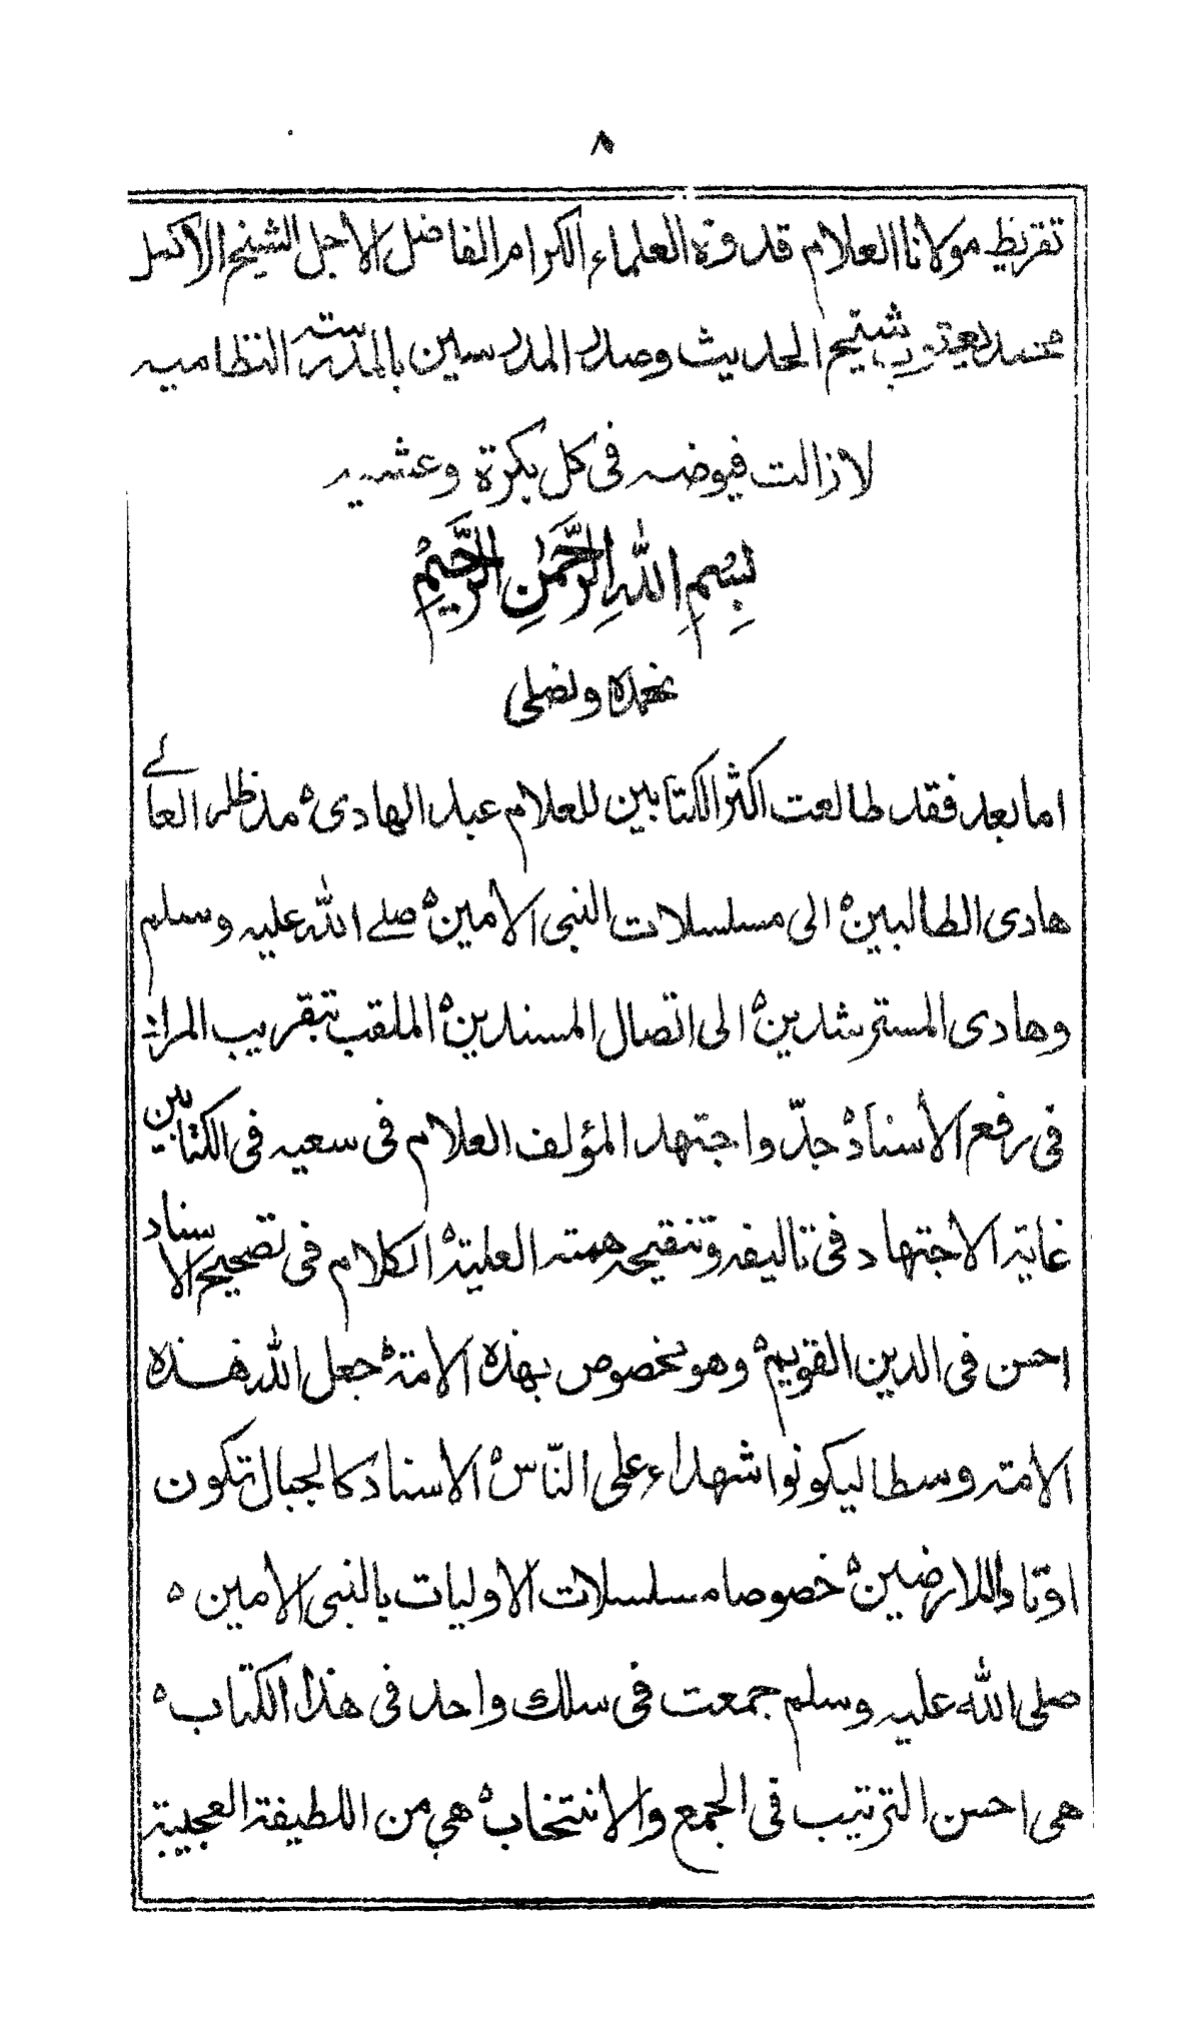 ٨
تقريظ مولانا العلام قدوة العلماء الكرام الفاضل الاجل الشيخ الاكمل
محمد يعقوب شيخ الحديث وصدر المدرسين بالمدرسة النظاميه
لازالت فيوضه فى كل بكرة وعشيه
بِسْمِ اللهِ الرَّحْمٰنِ الرَّحِيْمِ
نحمده ونصلى
اما بعد فقد طالعت اكثر الكتابين للعلام عبد الهادى ه مد ظله العالے
هادى الطالبين ه الى مسلسلات النبى الامين ه صلے الله عليه وسلم
وهادى المسترشدين ه الى اتصال المسندين ه الملقب بتقريب المراد
فى رفع الأسناد ه جدّ واجتهد المؤلف العلام فى سعيه فى الكتابين
غاية الاجتهاد فى تاليفه وتنقيحه همته العلية ه الكلام فى تصحيح الاسناد
احسن فى الدين القويم ه وهو مخصوص بهذه الامة ه جعل الله هذه
الامته وسطا ليكونوا شهداء على النّاس ه الاسناد كالجبال تكون
اوتادا للارضين ه خصوصا مسلسلات الاوليات بالنبى الامين ه
صلى الله عليه وسلم جمعت فى سلك واحد فى هذا الكتاب ه
هى احسن الترتيب فى الجمع والانتخاب ه هى من اللطيفة العجيبة